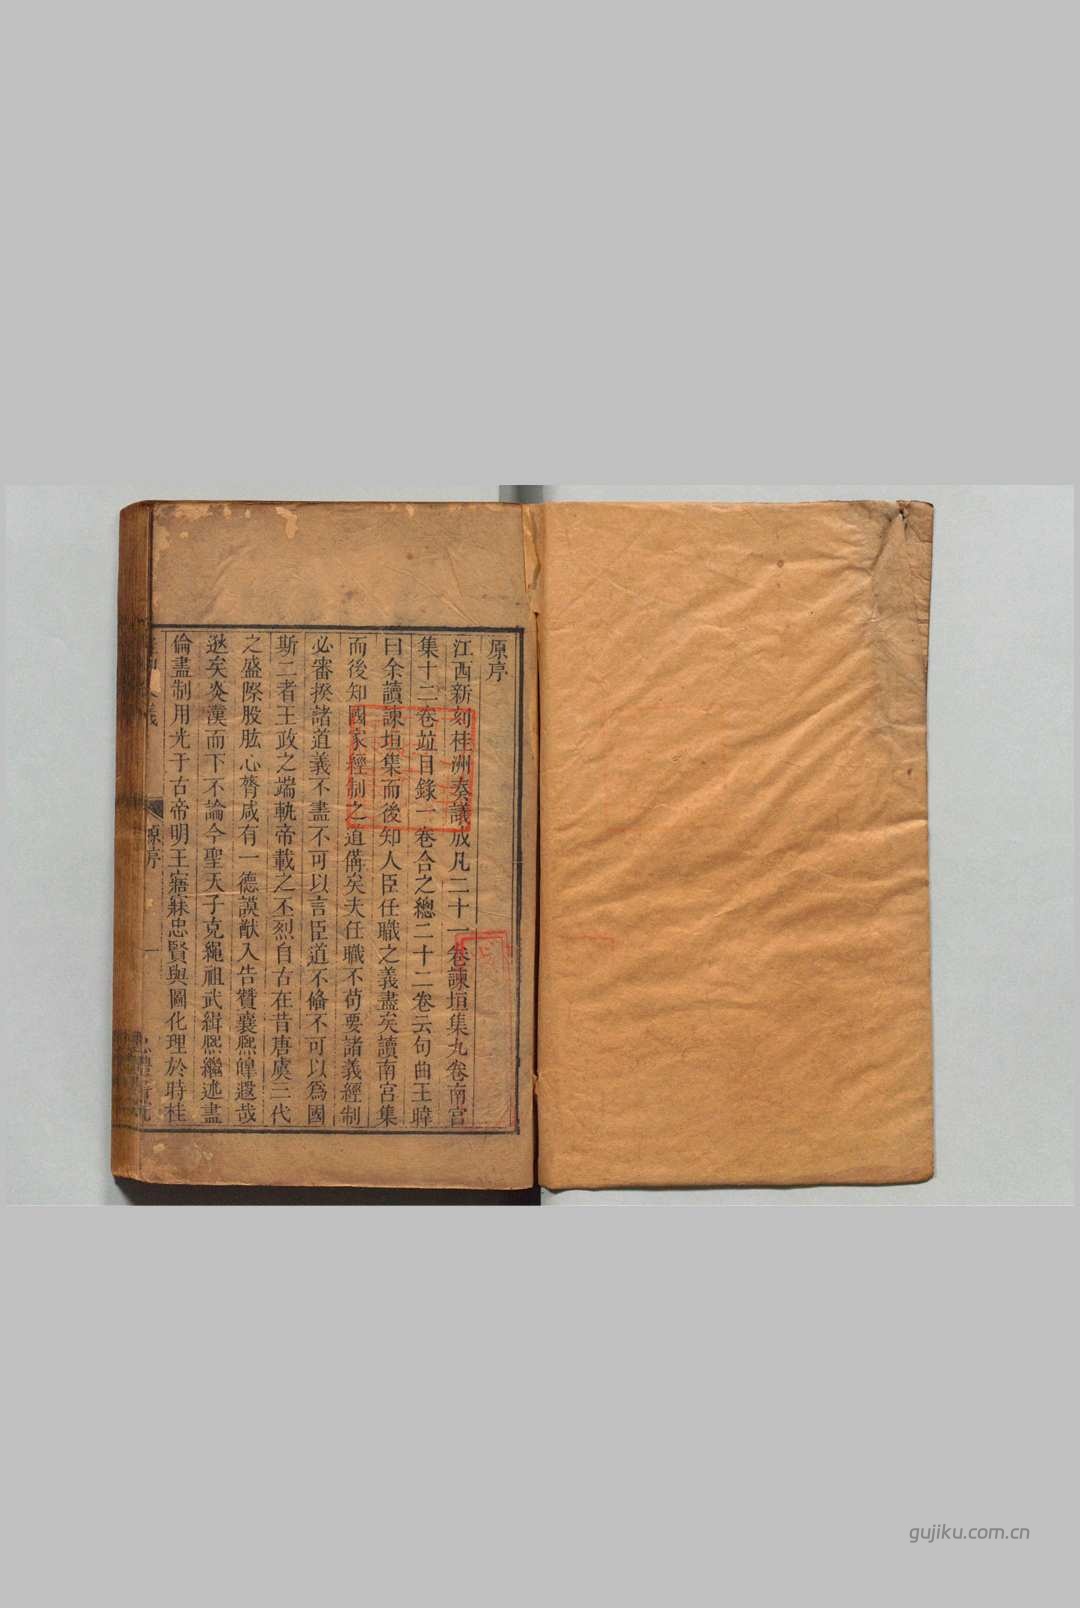 原序
江西新刻桂洲奏議成凡二十一卷諫垣集九卷南宮
集十二卷竝目錄一卷合之總二十二卷云句曲王暐
曰余讀諫垣集而後知人臣任職之義盡矣讀南宮集
而後知國家經制之道備矣夫任職不苟要諸義經制
必審揆諸道義不盡不可以言臣道不偹不可以為國
斯二者王政之端軌帝載之丕烈自古在昔唐虞三代
之盛際股肱心膂咸有一德謨猷入告贊襄熈皥遐哉
逖矣炎漢而下不論今聖天子克繩祖武緝熈繼述盡
倫盡制用光于古帝明王寤寐忠賢與圖化理於時桂
議
原序
一
gujiku.com.cn